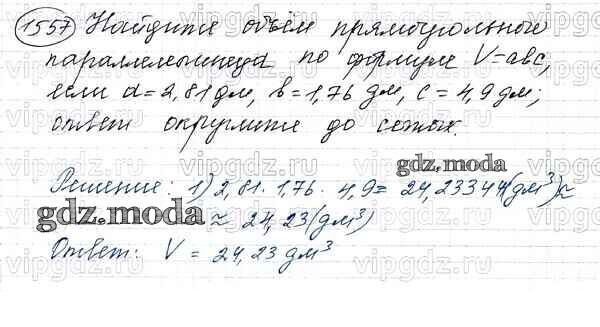 1557 Найдите объём прямоугольного
параллелепипеда по формуле V=abc,
если a=2,81 дм, b=1,76 дм, c=4,9 дм;
ответ округлите до сотых.
gdz.moda
Решение: 1) 2,81·1,76·4,9=24,23344(дм³)≈
gdz.moda
≈ 24,23(дм³)
Ответ: V = 24,23 дм³
vipgdz.ru